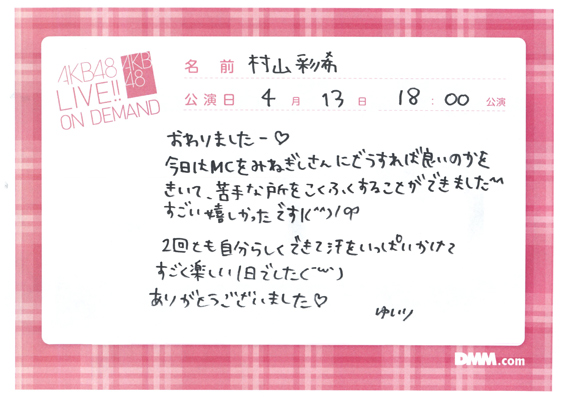 AKB48
LIVE!!
ON DEMAND
AKB
48
名前 村山彩希
公演日 4月 13日 18:00 公演
おわりましたー♡
今日はMCをみねぎしさんにどうすれば良いのかを
きいて、苦手な所をこくふくすることができました〜
すごい嬉しかったです!(^^)!
2回とも自分らしくできて汗をいっぱいかけて
すごく楽しい1日でした(˘︶˘)
ありがとうございました♡
ゆいり
DMM.com